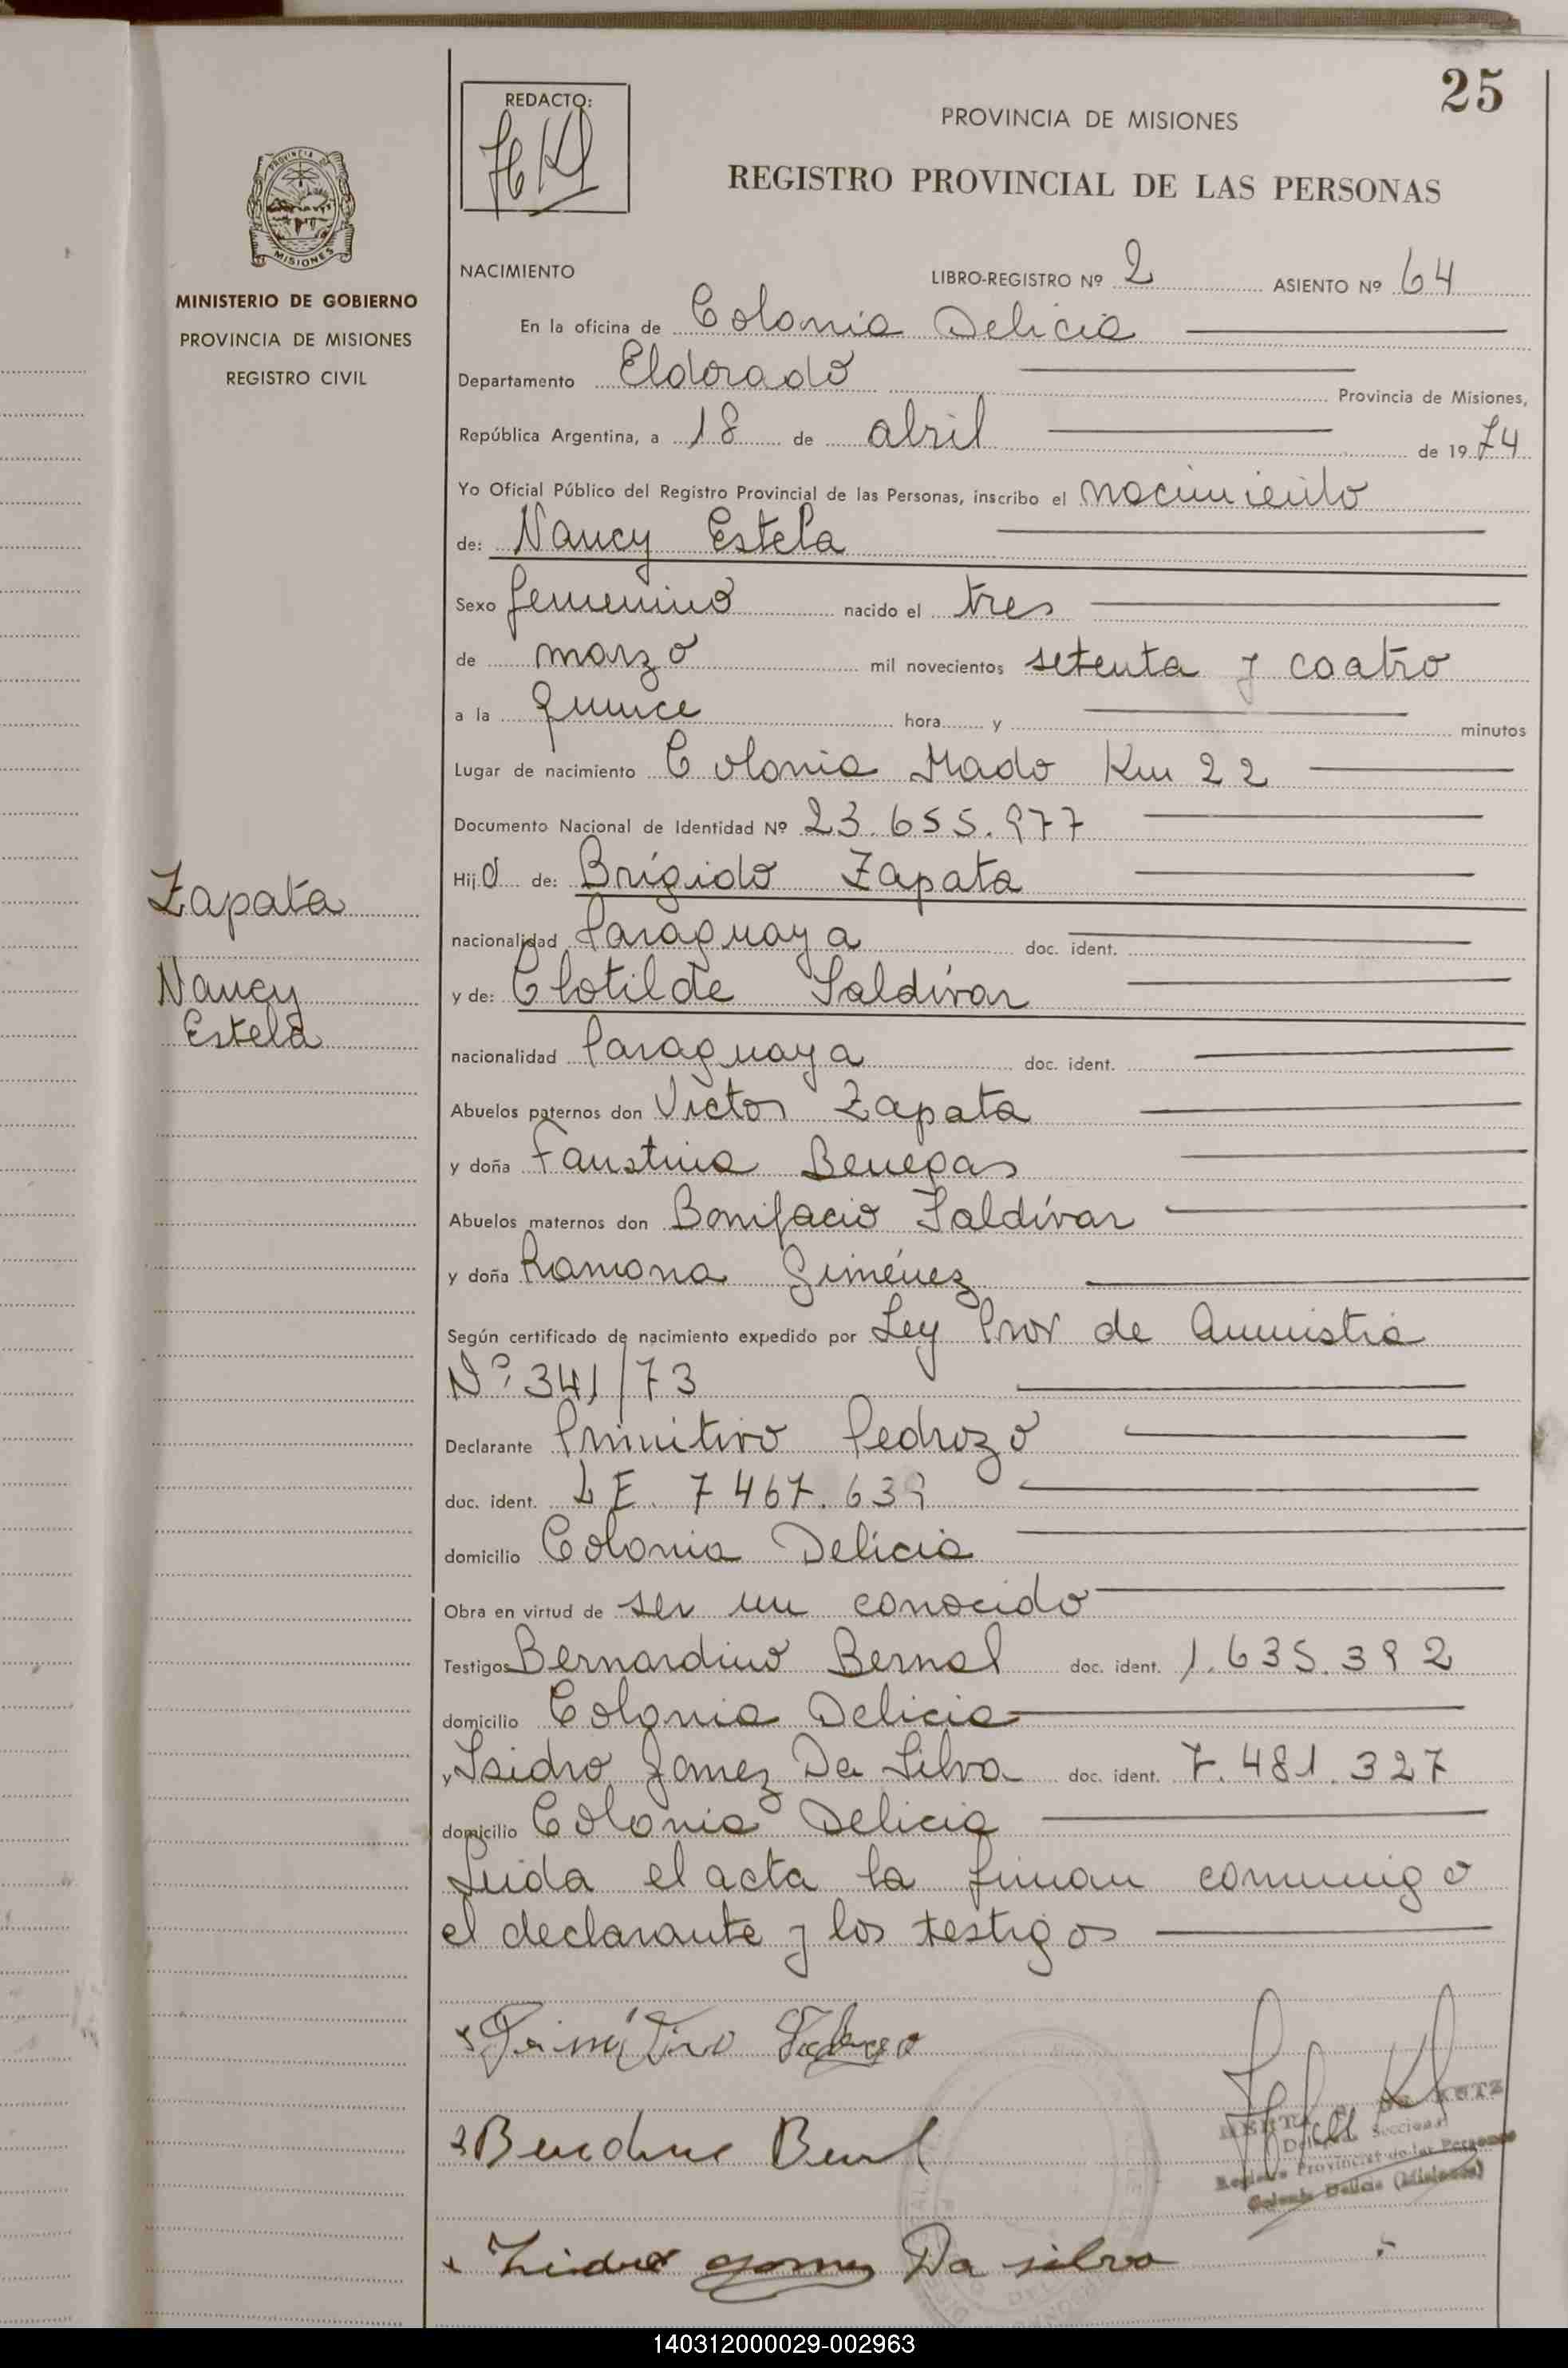 25
REDACTO:
PROVINCIA DE MISIONES
REGISTRO PROVINCIAL DE LAS PERSONAS
PROVINCIA
MISIONES
MINISTERIO DE GOBIERNO
PROVINCIA DE MISIONES
REGISTRO CIVIL
NACIMIENTO LIBRO-REGISTRO Nº 2 ASIENTO Nº 64
En la oficina de Colonia Delicia
Departamento Eldorado Provincia de Misiones,
República Argentina, a 18 de abril de 1974
Yo Oficial Público del Registro Provincial de las Personas, inscribo el nacimiento
de: Nancy Estela
Sexo femenino nacido el tres
de marzo mil novecientos setenta y cuatro
a la quince hora y minutos
Lugar de nacimiento Colonia Mado Km 22
Documento Nacional de Identidad Nº 23.655.977
Hija de: Brígido Zapata
nacionalidad Paraguaya doc. ident.
y de: Clotilde Saldívar
nacionalidad Paraguaya doc. ident.
Abuelos paternos don Victor Zapata
y doña Faustina Benegas
Abuelos maternos don Bonifacio Saldívar
y doña Ramona Giménez
Según certificado de nacimiento expedido por Ley Prov de Amnistia
Nº 341/73
Declarante Primitivo Pedrozo
doc. ident. LE. 7467.639
domicilio Colonia Delicia
Obra en virtud de ser un conocido
Testigos Bernardino Bernal doc. ident. 1.635.392
domicilio Colonia Delicia
y Isidro Gomez Da Silva doc. ident. 7.481.327
domicilio Colonia Delicia
Leida el acta la firman conmigo
el declarante y los testigos
Zapata
Nancy
Estela
Registro Provincial de las Personas
Colonia Delicia (Misiones)
Da silva
140312000029-002963